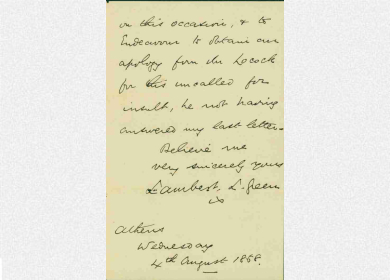 on this occasion, & to
Endeavour to obtain an
apology from Mr Locock
for this uncalled for
insult, he not having
answered my last letter.
Believe me
very sincerely yours
Lambert. L. Green
Athens
Wednesday
4th August 1868.